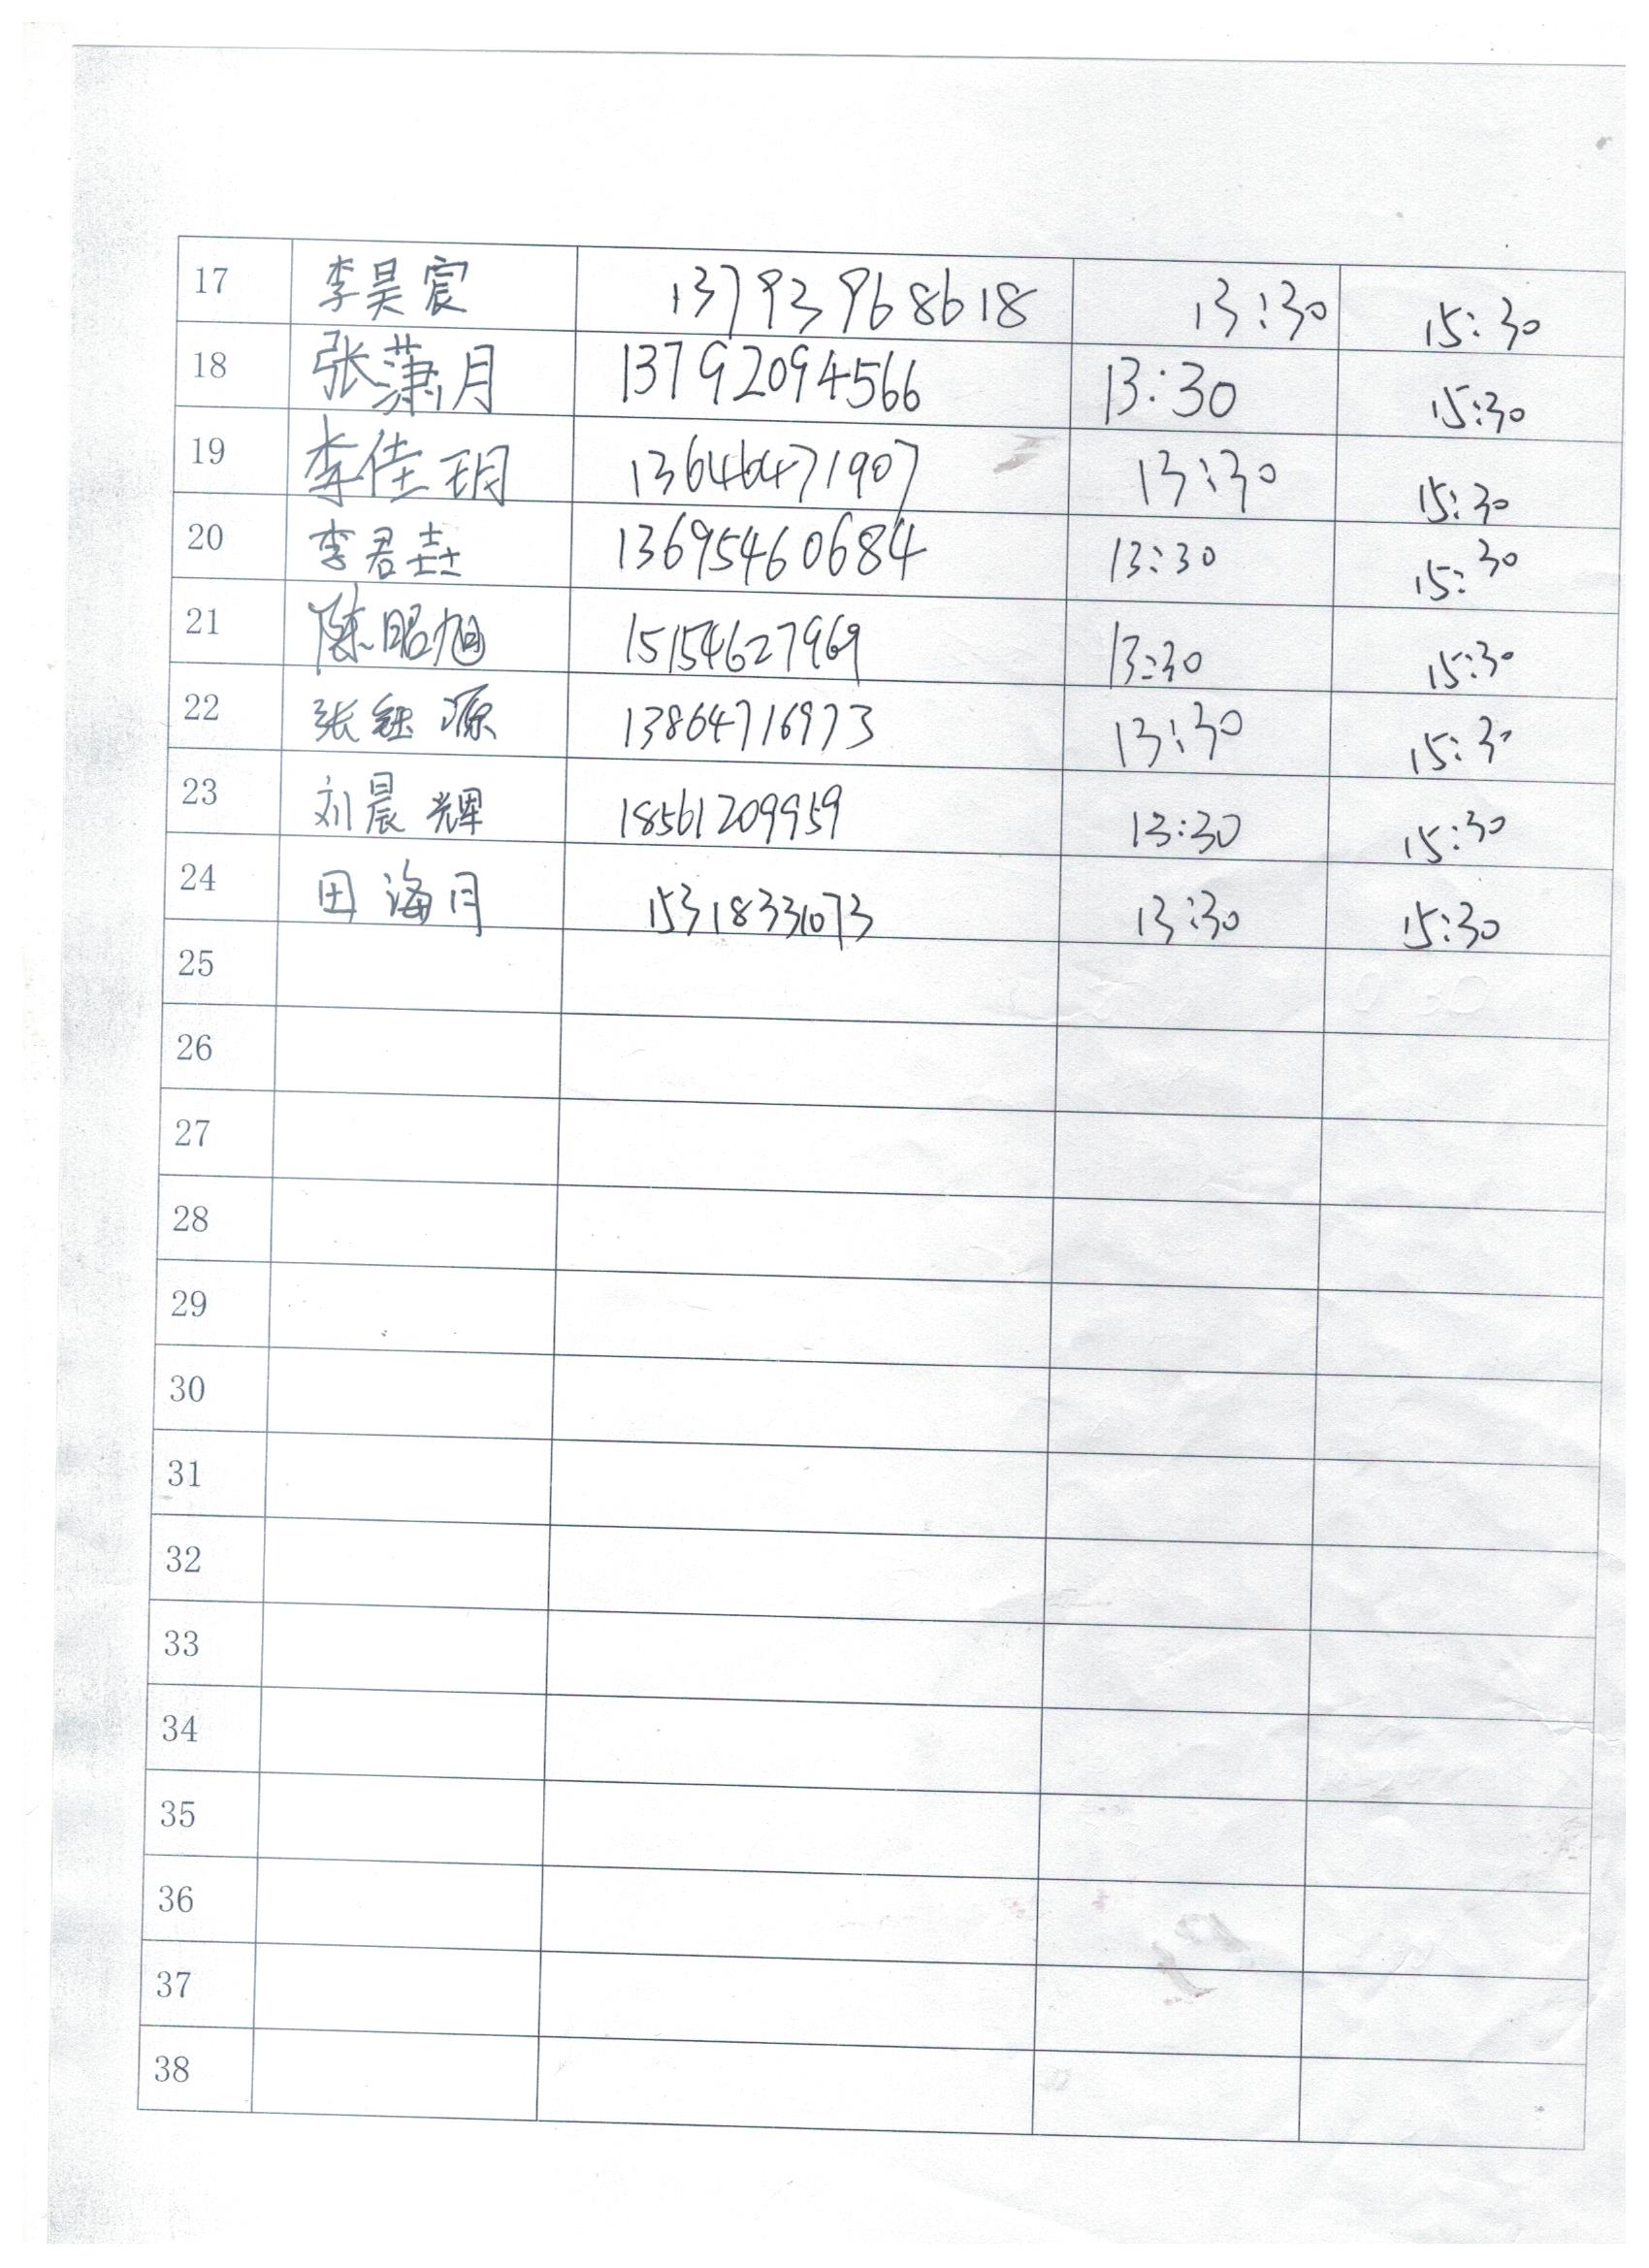 17 李昊宸 13793968618 13:30 15:30
18 张潇月 13792094566 13:30 15:30
19 李佳玥 13646471907 13:30 15:30
20 李君壵 13695460684 13:30 15:30
21 陈昭旭 15154627969 13:30 15:30
22 张钰源 13864716973 13:30 15:30
23 刘晨辉 18561209959 13:30 15:30
24 田海月 15318331073 13:30 15:30
25
26
27
28
29
30
31
32
33
34
35
36
37
38